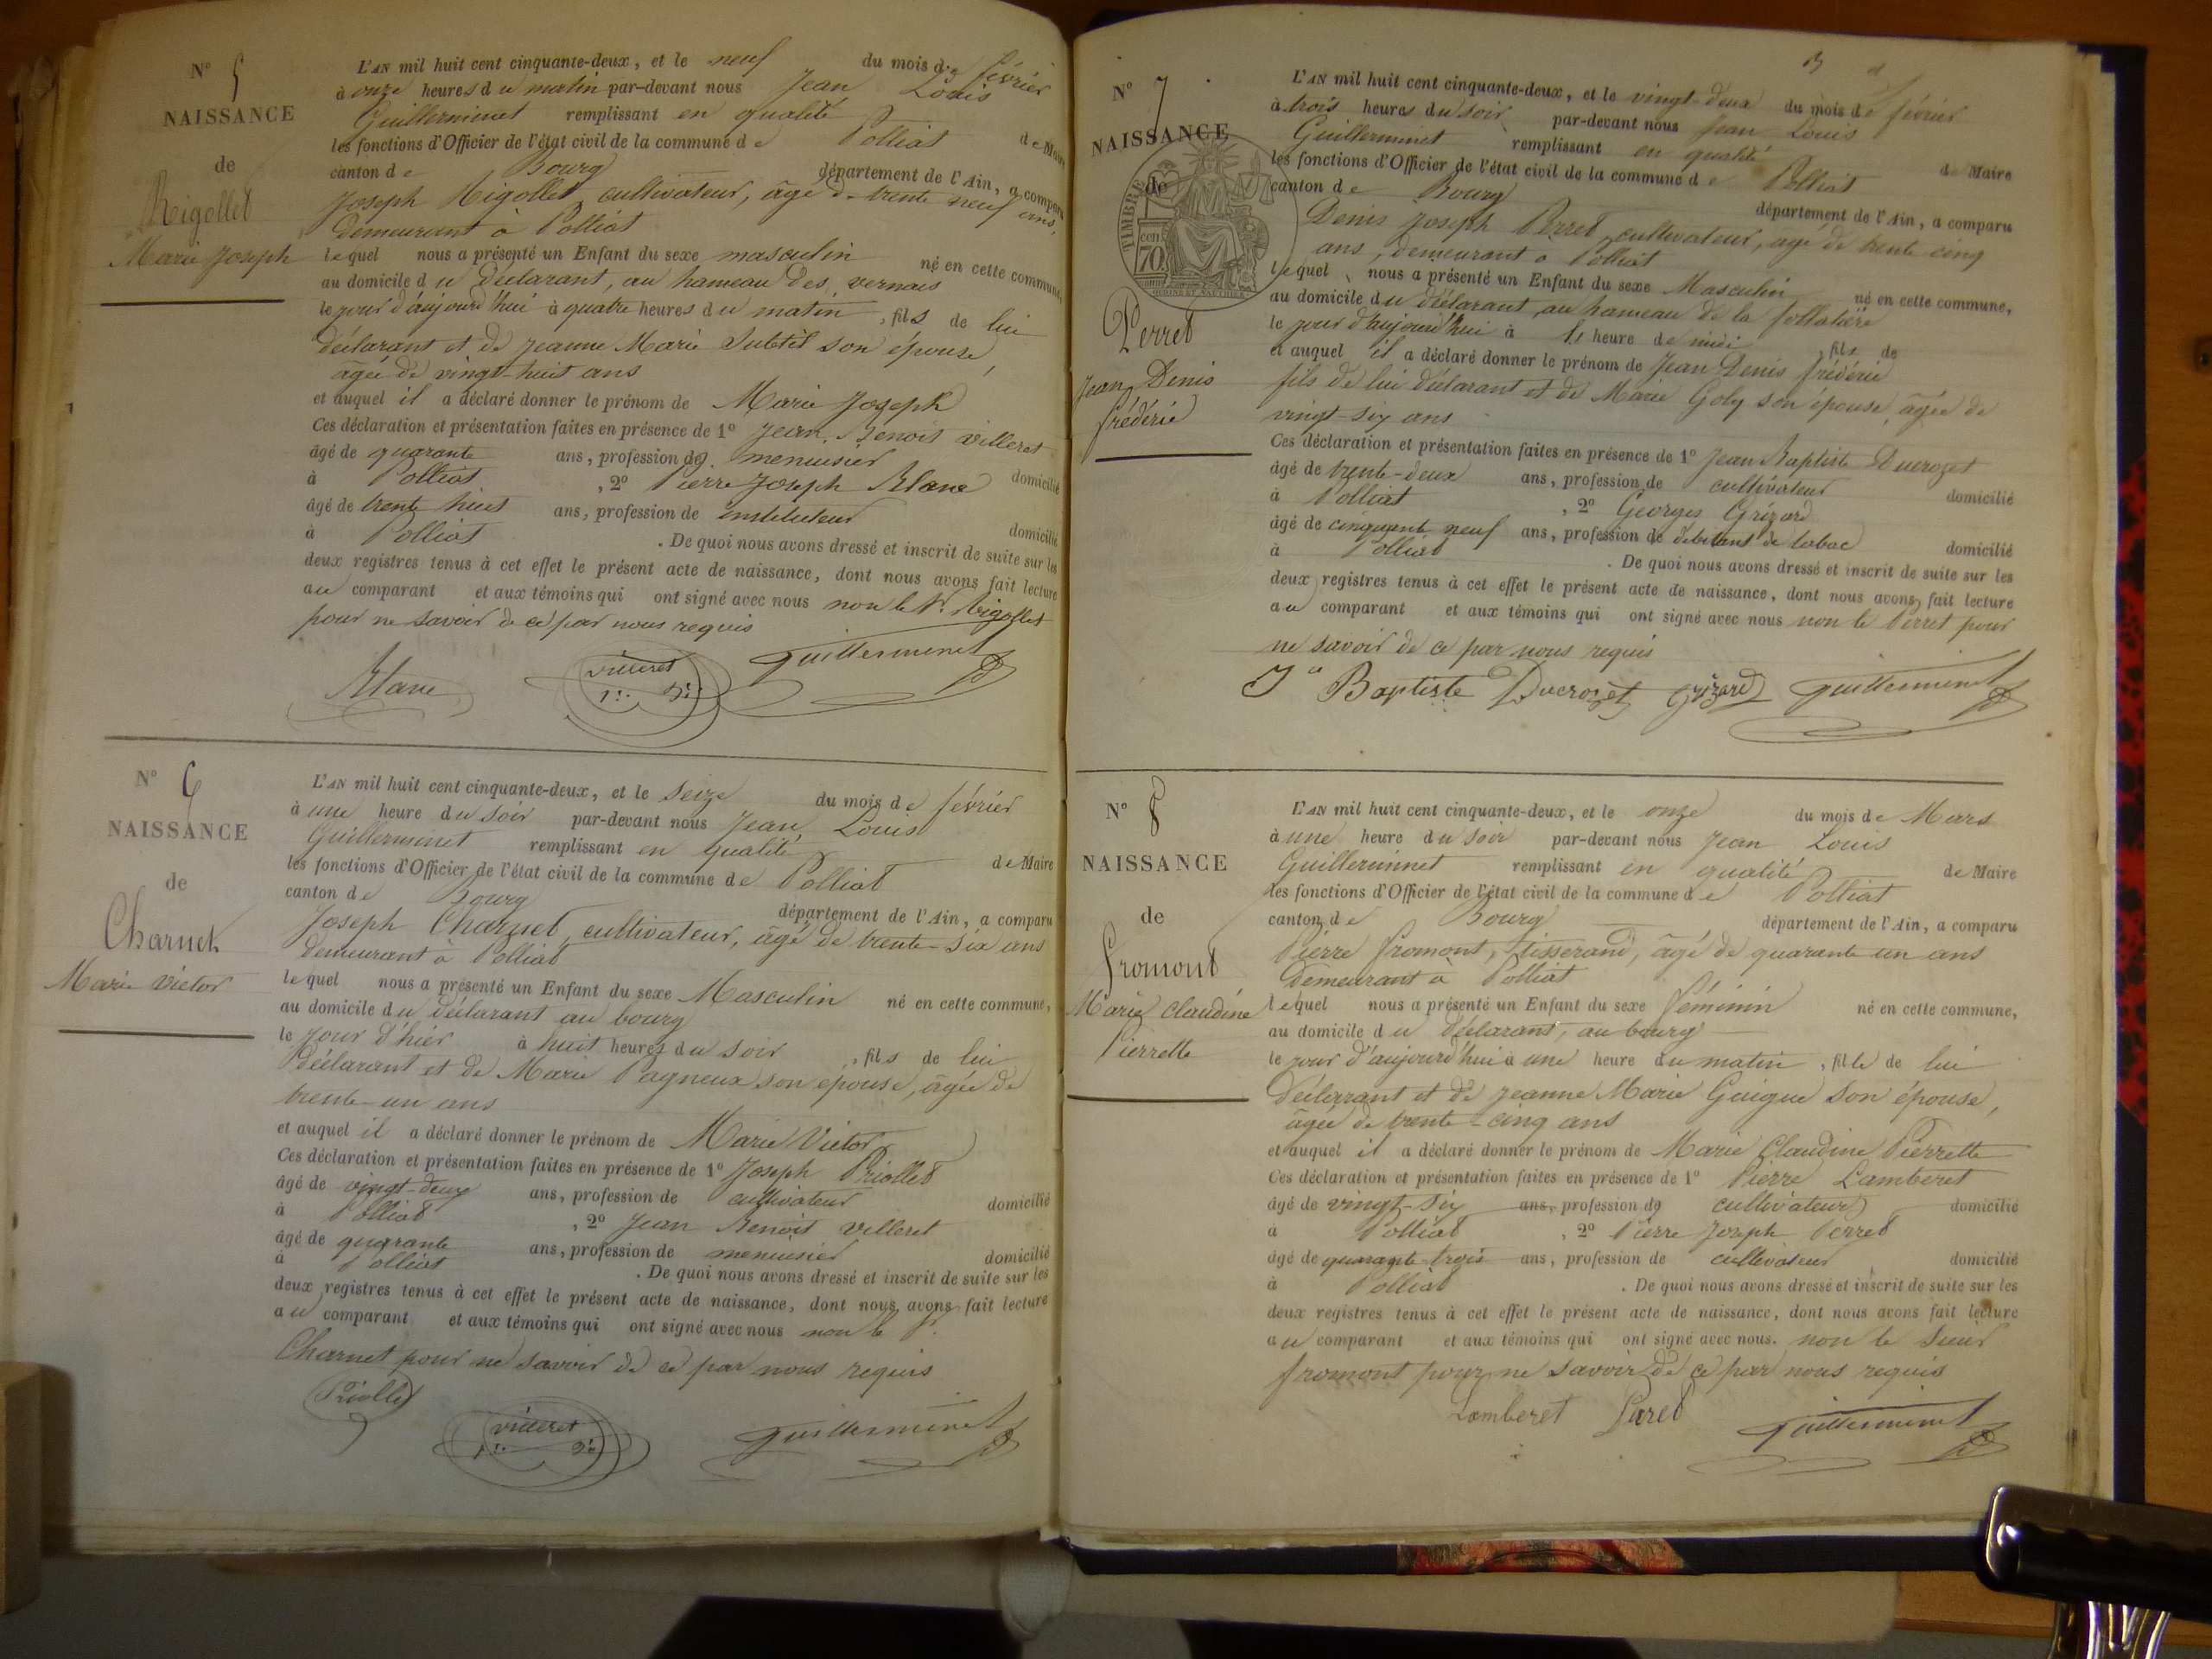 N° 5
NAISSANCE
de
Rigollet
Marie Joseph
L'AN mil huit cent cinquante-deux, et le neuf du mois de février
à onze heures du matin par-devant nous Jean Louis
Guillerminet remplissant en qualité de Maire
les fonctions d'Officier de l'état civil de la commune de Polliat
canton de Bourg département de l'Ain, a comparu
Joseph Rigollet, cultivateur, âgé de trente neuf ans,
demeurant à Polliat
lequel nous a présenté un Enfant du sexe masculin né en cette commune,
au domicile du déclarant, au hameau des vernais
le jour d'aujourd'hui à quatre heures du matin, fils de lui
déclarant et de Jeanne Marie Subtil son épouse,
âgée de vingt-huit ans
et auquel il a déclaré donner le prénom de Marie Joseph
Ces déclaration et présentation faites en présence de 1° Jean Benoit Villeret
âgé de quarante ans, profession de menuisier domicilié
à Polliat, 2° Pierre Joseph Blanc
âgé de trente huit ans, profession de instituteur domicilié
à Polliat. De quoi nous avons dressé et inscrit de suite sur les
deux registres tenus à cet effet le présent acte de naissance, dont nous avons fait lecture
au comparant et aux témoins qui ont signé avec nous non le Sr. Rigollet
pour ne savoir de ce par nous requis
Blanc villeret guillerminet
N° 6
NAISSANCE
de
Charnet
Marie Victor
L'AN mil huit cent cinquante-deux, et le seize du mois de février
à une heure du soir par-devant nous Jean Louis
Guillerminet remplissant en qualité de Maire
les fonctions d'Officier de l'état civil de la commune de Polliat
canton de Bourg département de l'Ain, a comparu
Joseph Charnet, cultivateur, âgé de trente-six ans
demeurant à Polliat
lequel nous a présenté un Enfant du sexe Masculin né en cette commune,
au domicile du déclarant au bourg
le jour d'hier à huit heures du soir, fils de lui
Déclarant et de Marie Pagneux son épouse, âgée de
trente-un ans
et auquel il a déclaré donner le prénom de Marie Victor
Ces déclaration et présentation faites en présence de 1° Joseph Priollet
âgé de vingt-deux ans, profession de cultivateur domicilié
à Polliat, 2° Jean Benoit Villeret
âgé de quarante ans, profession de menuisier domicilié
à Polliat. De quoi nous avons dressé et inscrit de suite sur les
deux registres tenus à cet effet le présent acte de naissance, dont nous avons fait lecture
au comparant et aux témoins qui ont signé avec nous non le Sr.
Charnet pour ne savoir de ce par nous requis
Priollet
villeret guillerminet
3
N° 7
NAISSANCE
de
TIMBRE
cen
70
Perret
Jean Denis
frédéric
L'AN mil huit cent cinquante-deux, et le vingt-deux du mois de février
à trois heures du soir par-devant nous Jean Louis
Guillerminet remplissant en qualité de Maire
les fonctions d'Officier de l'état civil de la commune de Polliat
canton de Bourg département de l'Ain, a comparu
Denis Joseph Perret, cultivateur, âgé de trente-cinq
ans, demeurant à Polliat
lequel nous a présenté un Enfant du sexe Masculin né en cette commune,
au domicile du déclarant, au hameau de la
le jour d'aujourd'hui à heure de midi, fils de
et auquel il a déclaré donner le prénom de Jean Denis frédéric
fils de lui déclarant et de Marie Goly son épouse, âgée de
vingt-six ans
Ces déclaration et présentation faites en présence de 1° Jean Baptiste Ducrozet
âgé de trente-deux ans, profession de cultivateur domicilié
à Polliat, 2° Georges Grizard
âgé de cinquante neuf ans, profession de débitant de tabac domicilié
à Polliat. De quoi nous avons dressé et inscrit de suite sur les
deux registres tenus à cet effet le présent acte de naissance, dont nous avons fait lecture
au comparant et aux témoins qui ont signé avec nous non le Perret pour
ne savoir de ce par nous requis
Jn Baptiste Ducrozet grizard guillerminet
N° 8
NAISSANCE
de
fromont
Marie Claudine
Pierrette
L'AN mil huit cent cinquante-deux, et le onze du mois de Mars
à une heure du soir par-devant nous Jean Louis
Guillerminet remplissant en qualité de Maire
les fonctions d'Officier de l'état civil de la commune de Polliat
canton de Bourg département de l'Ain, a comparu
Pierre fromont, tisserand, âgé de quarante un ans
demeurant à Polliat
lequel nous a présenté un Enfant du sexe féminin né en cette commune,
au domicile du déclarant, au bourg
le jour d'aujourd'hui à une heure du matin, fille de lui
Déclarant et de Jeanne Marie Guigue son épouse,
âgée de trente-cinq ans
et auquel il a déclaré donner le prénom de Marie Claudine Pierrette
Ces déclaration et présentation faites en présence de 1° Pierre Lamberet
âgé de vingt-six ans, profession de cultivateur domicilié
à Polliat, 2° Pierre Joseph Perret
âgé de quarante-trois ans, profession de cultivateur domicilié
à Polliat. De quoi nous avons dressé et inscrit de suite sur les
deux registres tenus à cet effet le présent acte de naissance, dont nous avons fait lecture
au comparant et aux témoins qui ont signé avec nous. non le sieur
fromont pour ne savoir de ce par nous requis
Lamberet Paret guillerminet